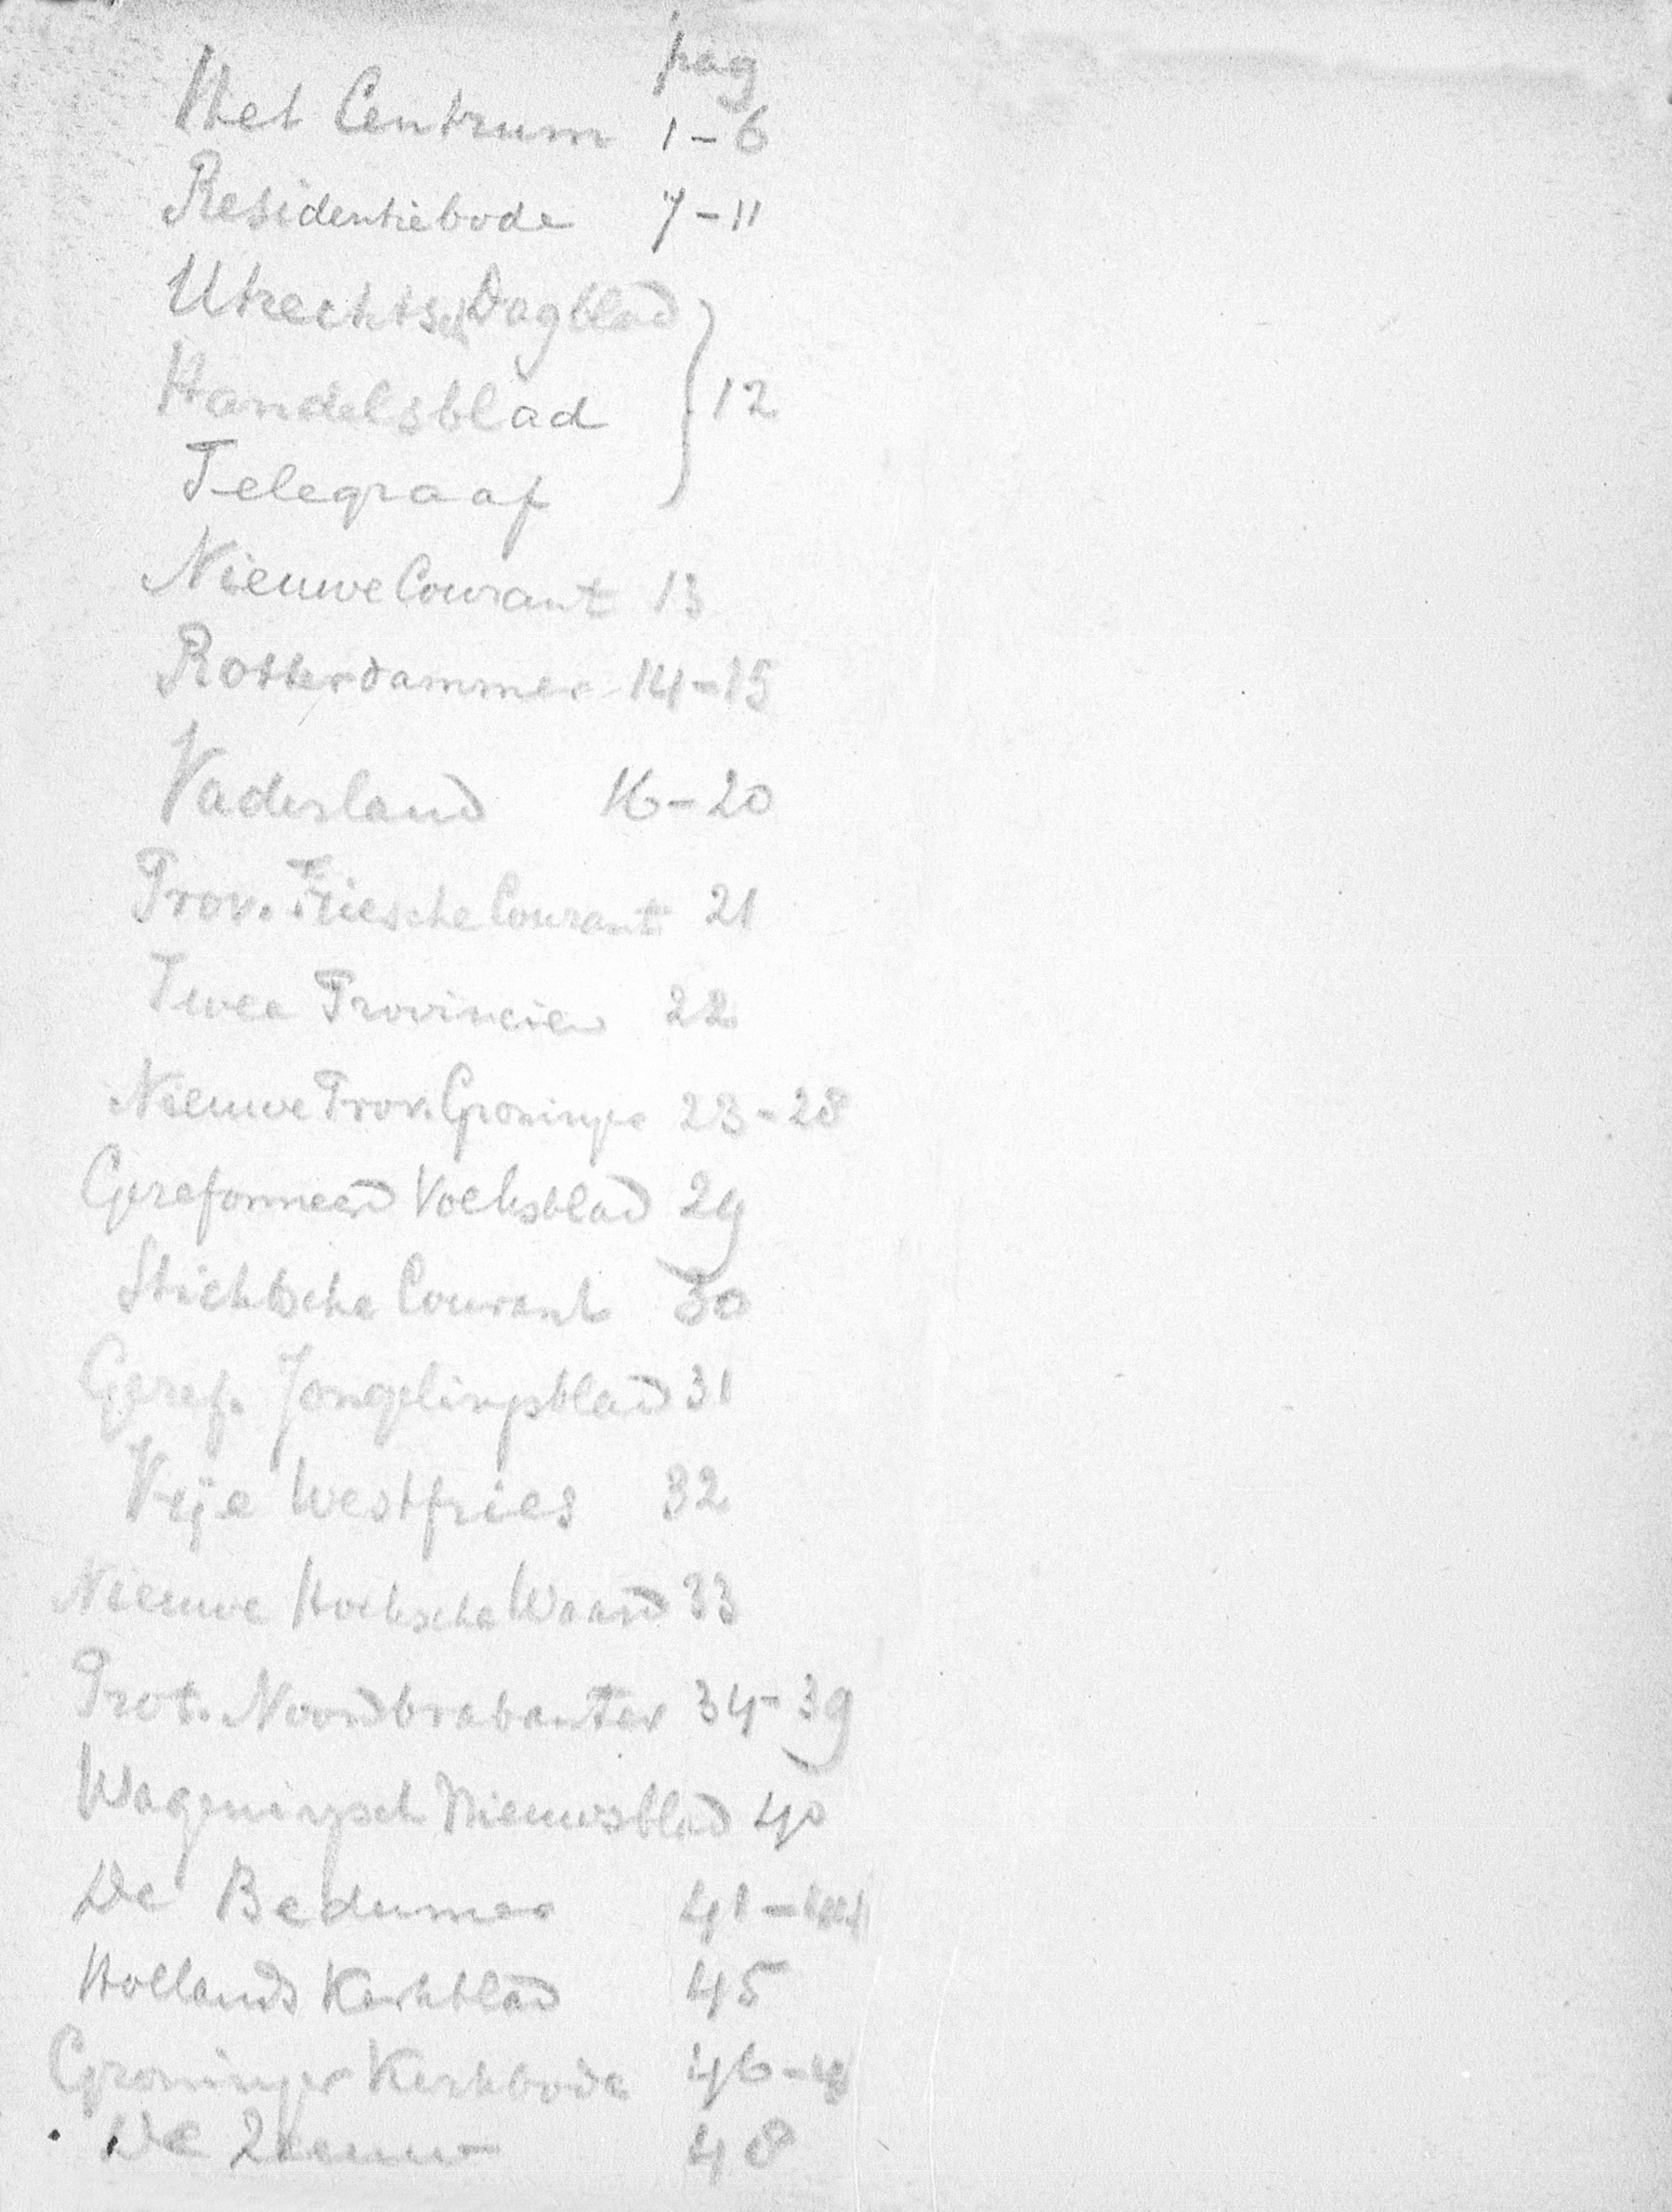 pag
Het Centrum 1-6
Residentiebode 7-11
Utrechtsch Dagblad
Handelsblad } 12
Telegraaf
Nieuwe Courant 13
Rotterdammer 14-15
Vaderland 16-20
Prov. Friesche Courant 21
Twee Provincien 22
Nieuwe Prov. Groninger 23-28
Gereformeerd Volksblad 29
Stichtsche Courant 30
Geref. Jongelingsblad 31
Vrije Westfries 32
Nieuwe Hoeksche Waard 33
Prot. Noordbrabanter 34-39
Wageningsch Nieuwsblad 40
De Bedumer 41-44
Hollands Kerkblad 45
Groninger Kerkbode 46-
De Zeeuw 48